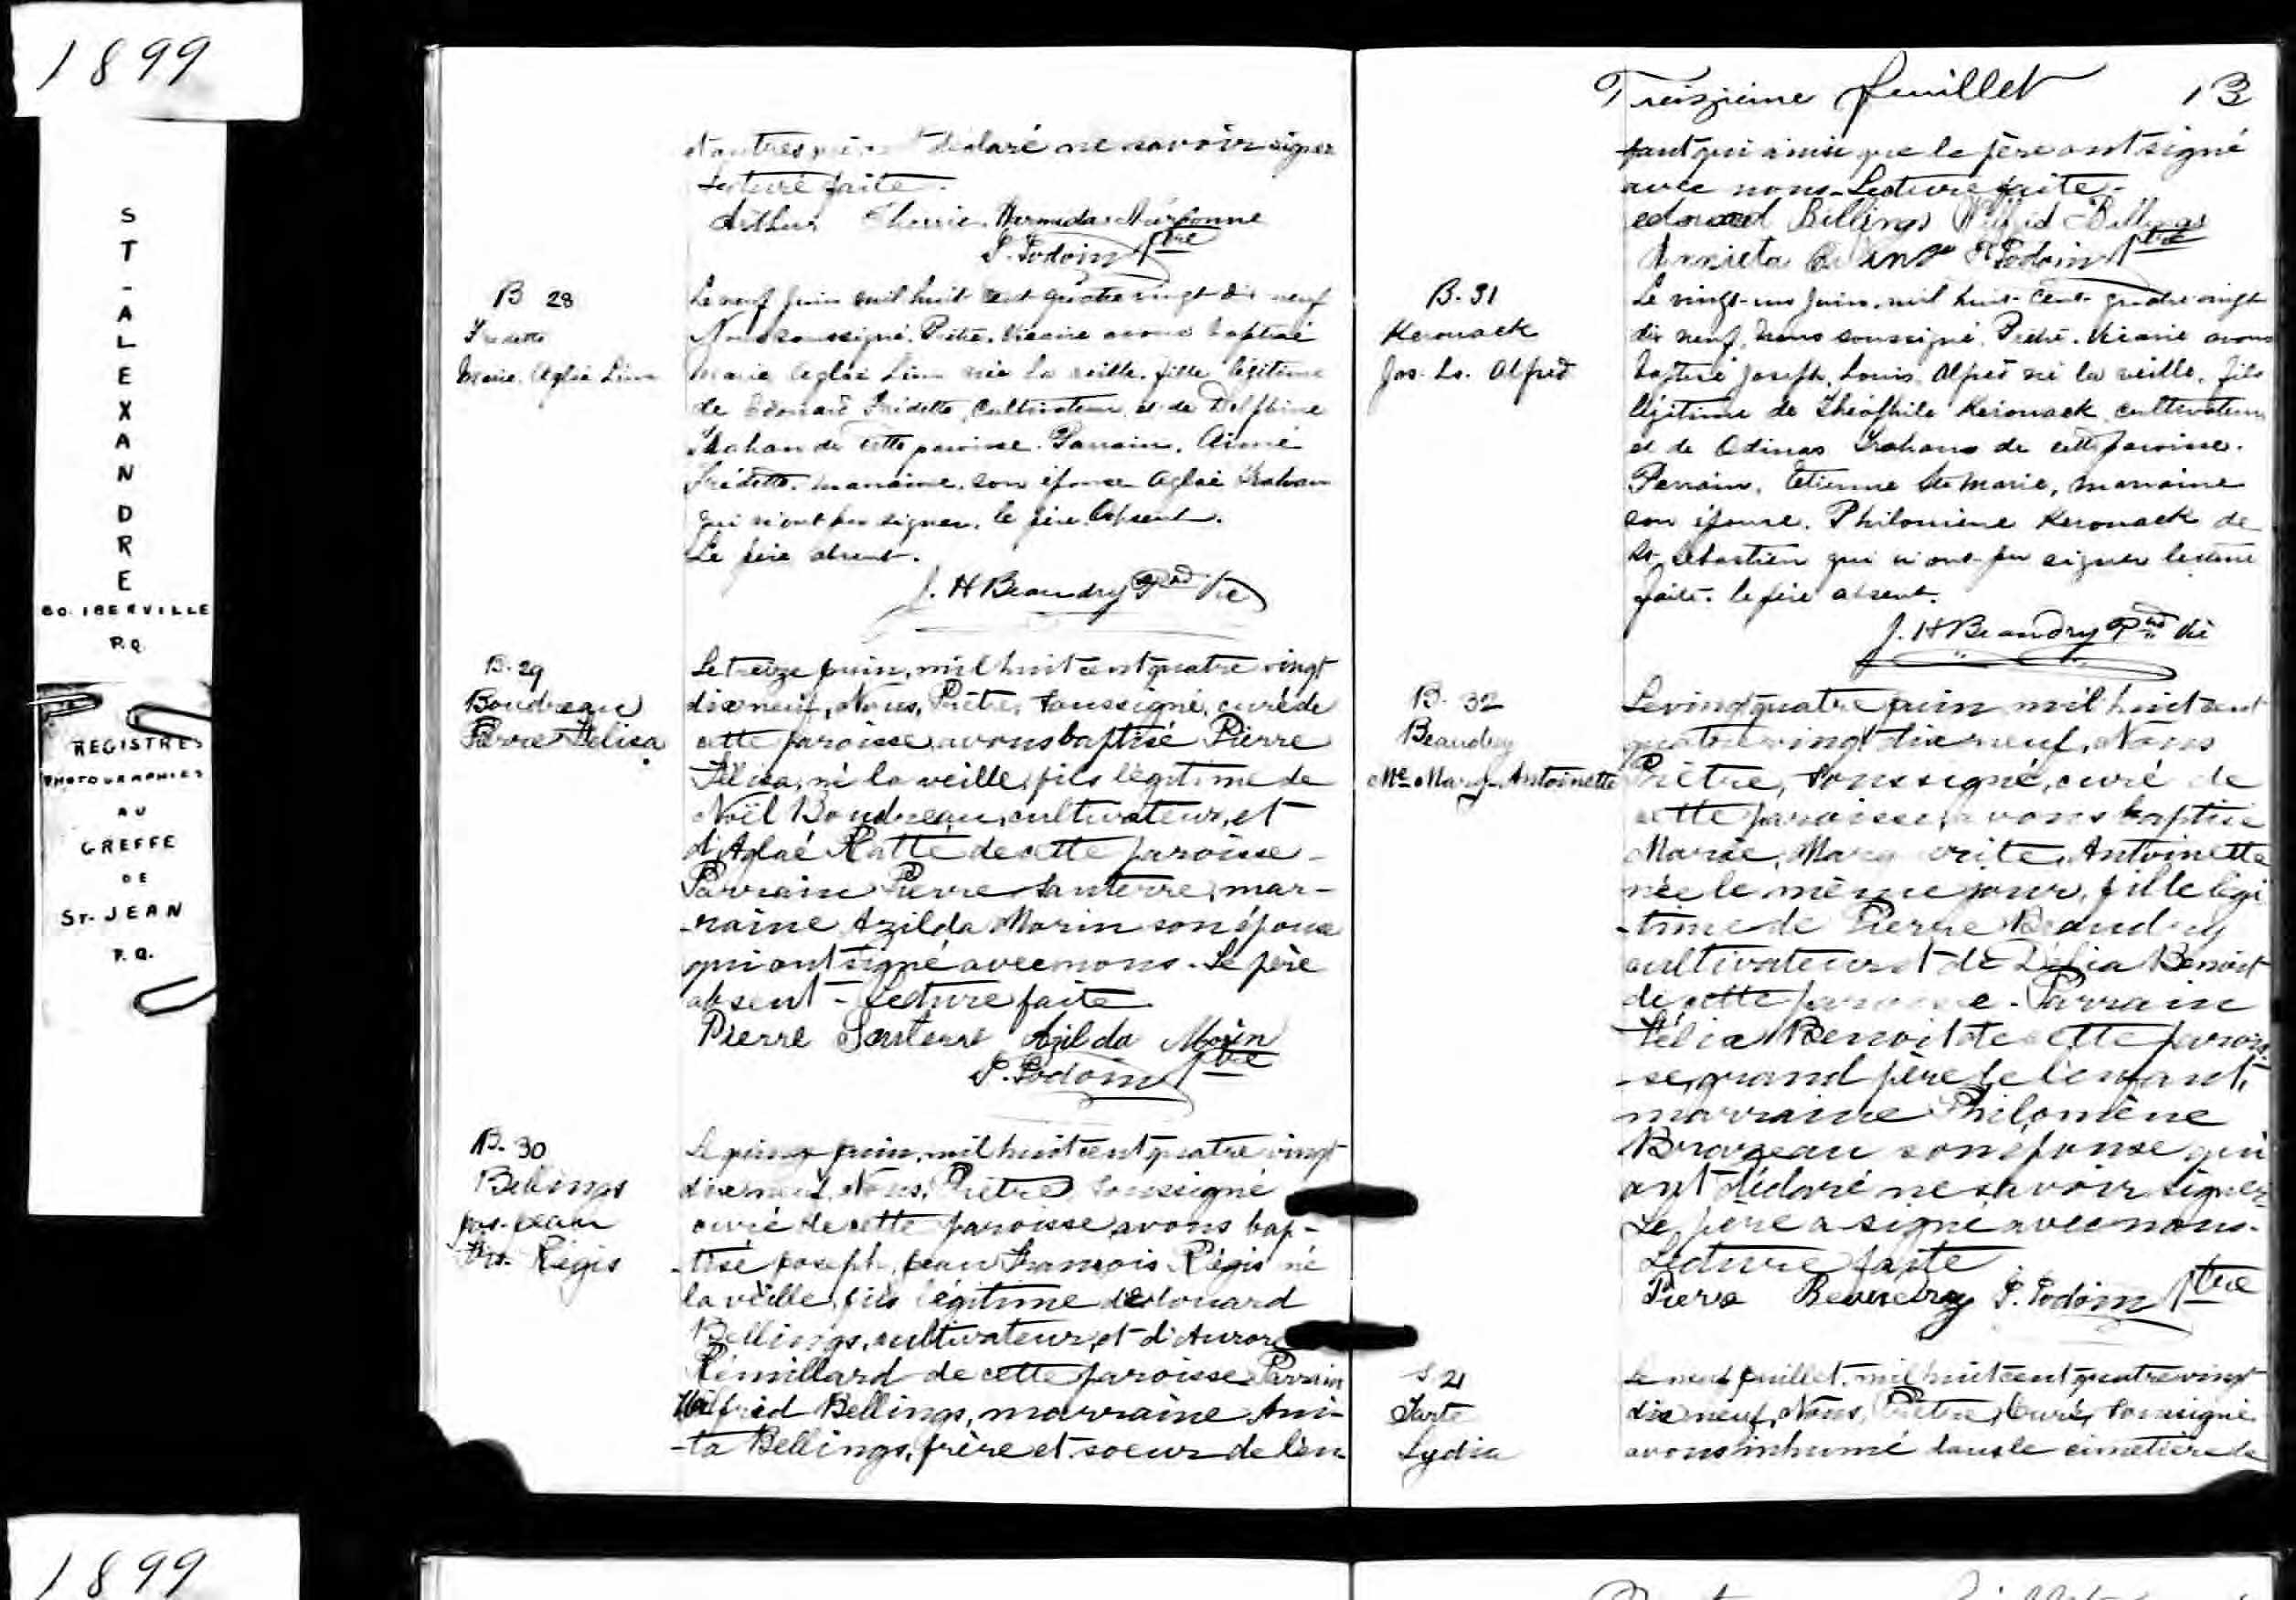 1899
ST-ALEXANDRE
CO. IBERVILLE
P.Q.
REGISTRES
PHOTOGRAPHIES
AU
GREFFE
DE
ST-JEAN
P.Q.
1899
déclaré ne savoir signer
Lecture faite.
Arthur Hermidas Narbonne
P. Podoin Ptre
B 28
Fredette
Marie Aglaé Lina
Le neuf juin mil huit cent quatre vingt dix neuf
Nous soussigné, Prêtre, Vicaire avons baptisé
Marie Aglaé Lina née la veille, fille légitime
de Edouard Frédette, cultivateur, et de Delphine
Trahan de cette paroisse. Parrain, Aimé
Frédette, marraine, son épouse Aglaé Trahan
qui n'ont pu signer, le père absent.
Le père absent.
J. H Beaudry Vic
B. 29
Boudreau
Pierre Félica
Le treize juin, mil huit cent quatre vingt
dix neuf, Nous, Prêtre, soussigné, curé de
cette paroisse, avons baptisé Pierre
Félica, né la veille, fils légitime de
Noël Boudreau, cultivateur, et
d'Aglaé Ratté de cette paroisse -
Parrain Pierre Santerre, mar-
-raine Azilda Morin son épouse
qui ont signé avec nous - Le père
absent - Lecture faite
Pierre Santerre Azilda Morin
P. Podoin Ptre
B. 30
Bellings
Jos. Jean
Frs. Régis
Le quinze juin, mil huit cent quatre vingt
dix neuf, Nous, Prêtre soussigné
curé de cette paroisse avons bap-
-tisé Joseph, Jean François Régis né
la veille, fils légitime d'Edouard
Bellings, cultivateur, et d'Aurore
Rémillard de cette paroisse. Parrain
Wilfrid Bellings, marraine Ani-
-ta Bellings, frère et soeur de l'en-
Treizième feuillet 13
fant qui ainsi que le père ont signé
avec nous - Lecture faite -
edouard Billings Wilfrid Billings
P. Podoin Ptre
B. 31
Kerouack
Jos. Ls. Alfred
Le vingt-un juin, mil huit cent quatre vingt
dix neuf, Nous soussigné, Prêtre, Vicaire avons
baptisé Joseph, Louis, Alfred né la veille, fils
légitime de Théophile Kérouack, cultivateur
et de Odinas Trahan de cette paroisse.
Parrain, Etienne Ste Marie, marraine
son épouse, Philomène Kerouack de
St. Sébastien qui n'ont pu signer lecture
faite. le père absent.
J. H Beaudry
B. 32
Beaudry
Mie Marg. Antoinette
Le vingt quatre juin mil huit cent
quatre vingt dix neuf, Nous
Prêtre, soussigné, curé de
cette paroisse, avons baptisé
Marie, Marguerite, Antoinette
née le même jour, fille légi
-time de Pierre Beaudry
cultivateur et de Délia Benoit
de cette paroisse - Parrain
Benoit de cette parois
-se, grand père de l'enfant,
marraine Philomène
Brazeau son épouse qui
ont déclaré ne savoir signer
Le père a signé avec nous -
Lecture faite
Pierre Beaudry P. Podoin Ptre
S. 21
Tarte
Lydia
Le neuf juillet, mil huit cent quatre vingt
dix neuf, Nous, Prêtre, Curé, soussigné
avons inhumé dans le cimetière de